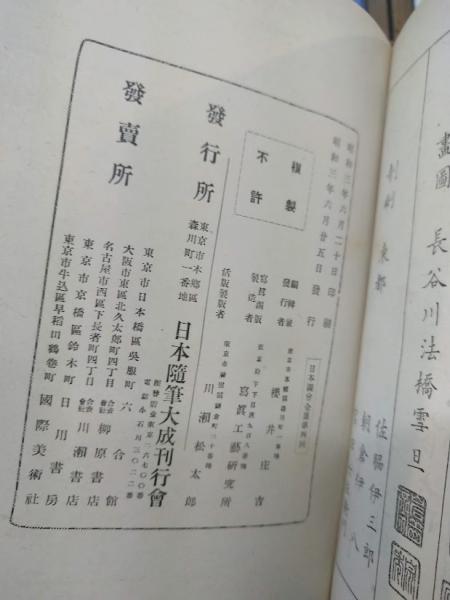 畫圖 長谷川法橋雪旦
東都
佐脇伊三郎
昭和三年六月二十日印刷
昭和三年六月廿五日發行
日本圖會全集第四回
不許
複製
編輯兼
發行者
櫻井庄吉
寫眞製版
製造者
寫眞工藝研究所
活版製版者
川瀬松太郎
發行所
東京市本郷區
森川町一番地
日本隨筆大成刊行會
振替貯金東京二六七〇〇番
電話小石川三〇二二番
發賣所
東京市日本橋區吳服町 六合館
大阪市東區北久太郎町四丁目 合資會社 柳原書店
名古屋市西區下長者町四丁目 合資會社 川瀬書店
東京市京橋區鈴木町 日用書房
東京市牛込區早稻田鶴卷町 國際美術社